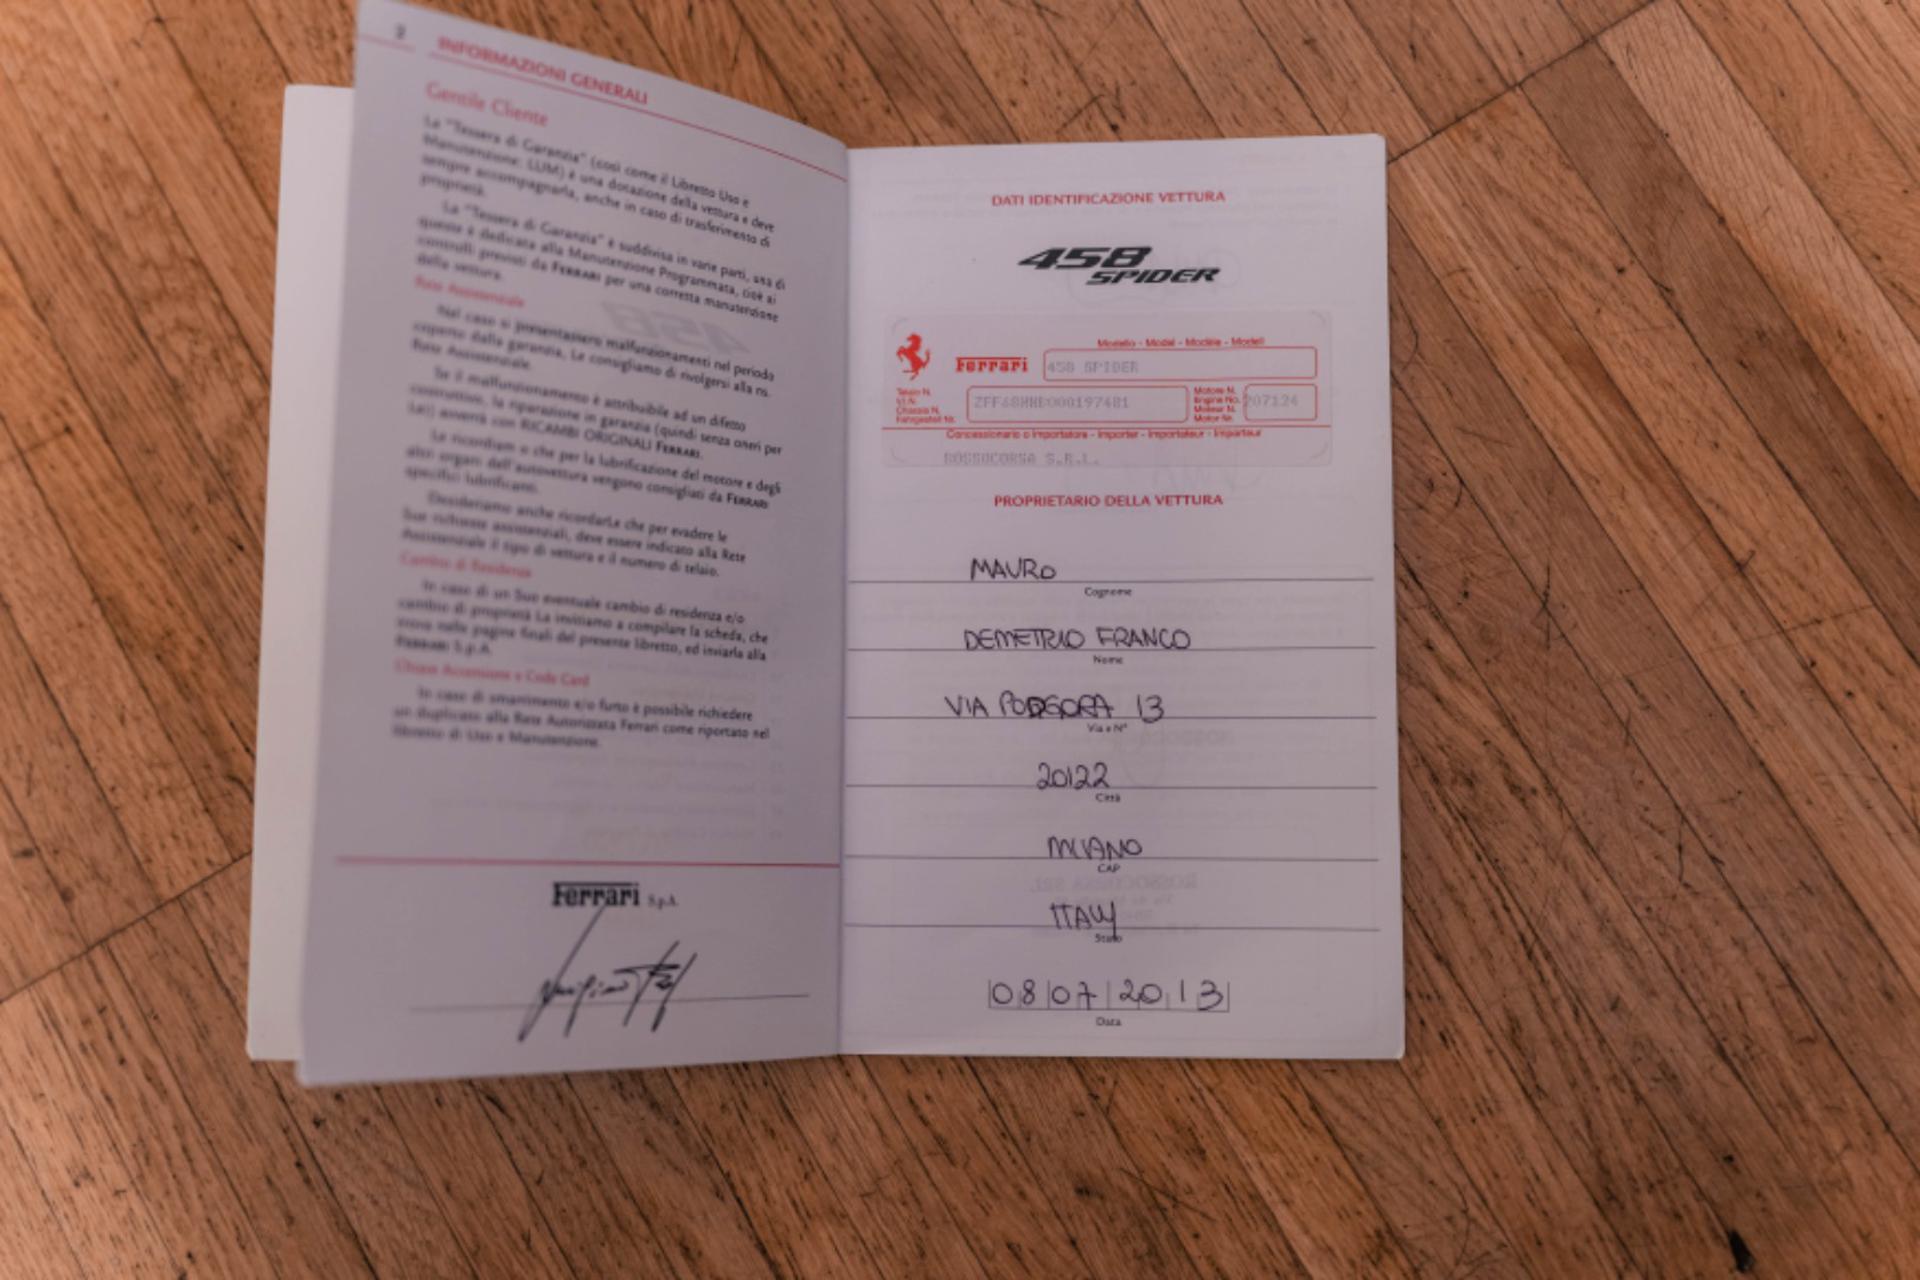 2
INFORMAZIONI GENERALI
Gentile Cliente
La "Tessera di Garanzia" (così come il Libretto Uso e
Manutenzione: LUM) è una dotazione della vettura e deve
sempre accompagnarla, anche in caso di trasferimento di
proprietà.
La "Tessera di Garanzia" è suddivisa in varie parti, una di
queste è dedicata alla Manutenzione Programmata, cioè ai
controlli previsti da FERRARI per una corretta manutenzione
della vettura.
Rete Assistenziale
Nel caso si presentassero malfunzionamenti nel periodo
coperto dalla garanzia, Le consigliamo di rivolgersi alla ns.
Rete Assistenziale.
Se il malfunzionamento è attribuibile ad un difetto
costruttivo, la riparazione in garanzia (quindi senza oneri per
Lei) avverrà con RICAMBI ORIGINALI FERRARI.
Le ricordiamo che per la lubrificazione del motore e degli
altri organi dell'autovettura vengono consigliati da FERRARI
specifici lubrificanti.
Desideriamo anche ricordarLe che per evadere le
Sue richieste assistenziali, deve essere indicato alla Rete
Assistenziale il tipo di vettura e il numero di telaio.
Cambio di Residenza
In caso di un Suo eventuale cambio di residenza e/o
cambio di proprietà La invitiamo a compilare la scheda, che
trova nelle pagine finali del presente libretto, ed inviarla alla
FERRARI S.p.A.
Chiave Accensione e Code Card
In caso di smarrimento e/o furto è possibile richiedere
un duplicato alla Rete Autorizzata Ferrari come riportato nel
libretto di Uso e Manutenzione.
Ferrari S.p.A.
DATI IDENTIFICAZIONE VETTURA
458
SPIDER
Modello - Model - Modèle - Modell
Ferrari 458 SPIDER
Telaio N.
V.I.N.
Chassis N.
Fahrgestell Nr.
ZFF68NHB000197481
Motore N.
Engine No.
Moteur N.
Motor Nr.
207124
Concessionario o Importatore - Importer - Importateur - Importeur
ROSSOCORSA S.R.L.
PROPRIETARIO DELLA VETTURA
MAURO
Cognome
DEMETRIO FRANCO
Nome
VIA PODGORA 13
Via e N°
20122
Città
MILANO
CAP
ITALY
Stato
08 07 2013
Data